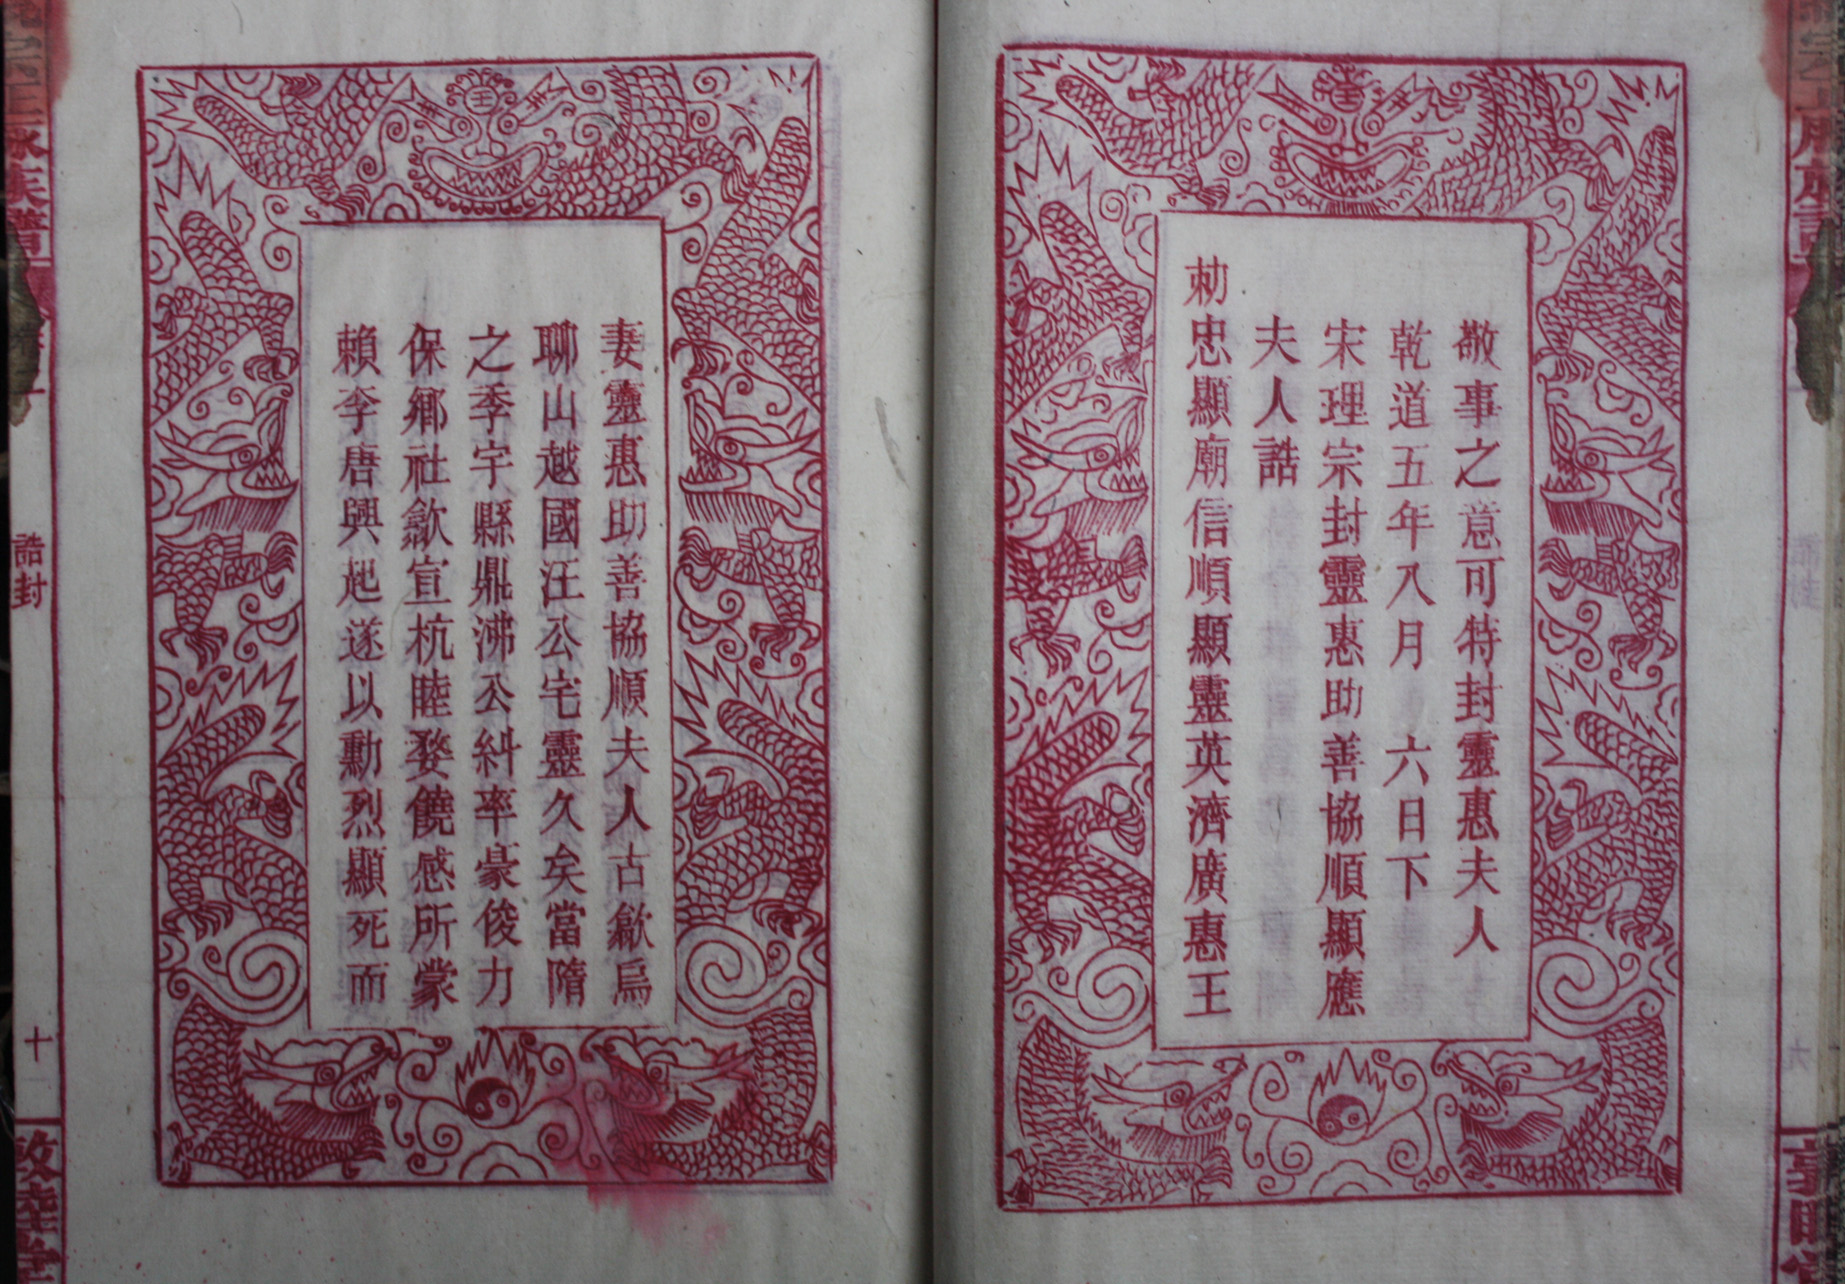 敬事之意可特封靈惠夫人
乾道五年八月 六日下
宋理宗封靈惠助善協順顯應
夫人誥
勑忠顯廟信順顯靈英濟廣惠王
妻靈惠助善協順夫人古歙烏
聊山越國汪公宅靈久矣當隋
之季宇縣鼎沸公糾率豪俊力
保鄉社歙宣杭睦婺饒咸所蒙
賴李唐興起遂以勳烈顯死而
誥封
十